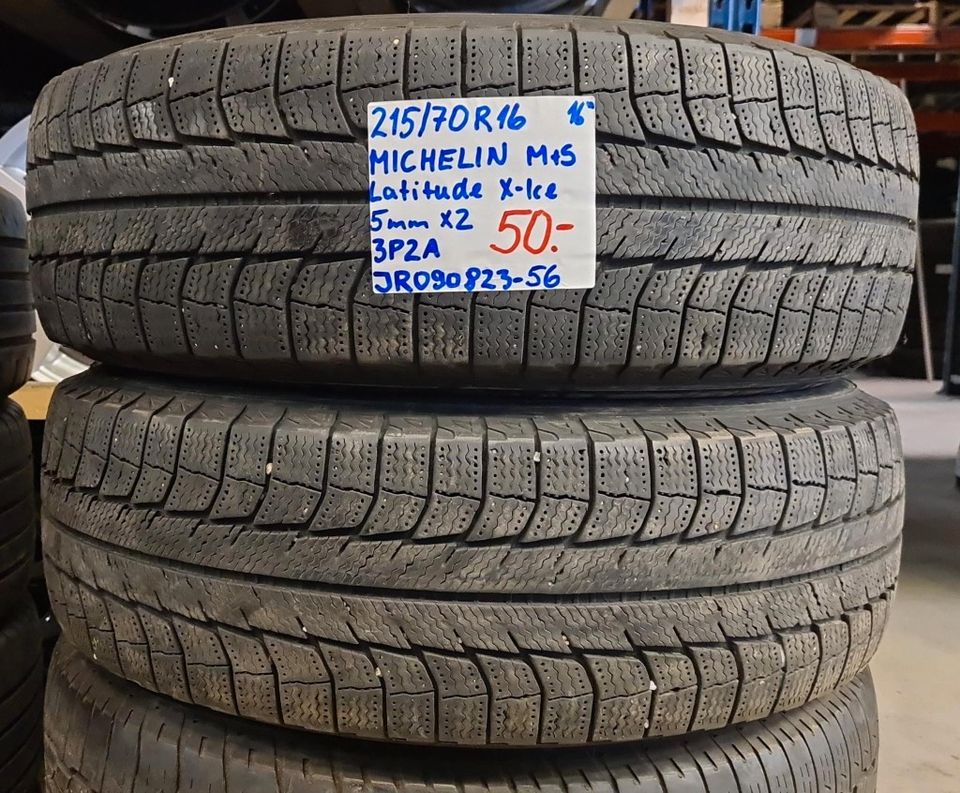 215/70R16 16"
MICHELIN M+S
Latitude X-Ice
5mm X2 50.-
3P2A
JR090823-56